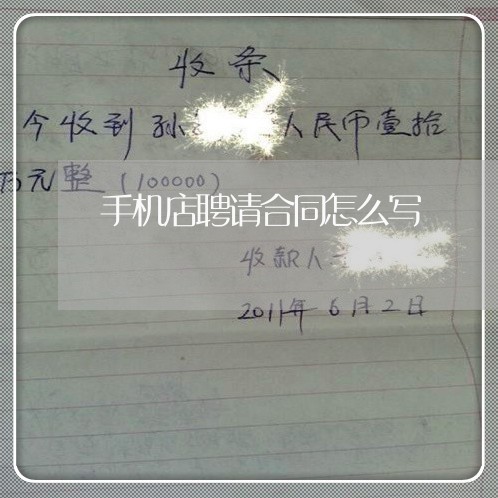 收条
今收到孙 人民币壹拾
万元整(100000)
手机店聘请合同怎么写
收款人
2011年6月2日